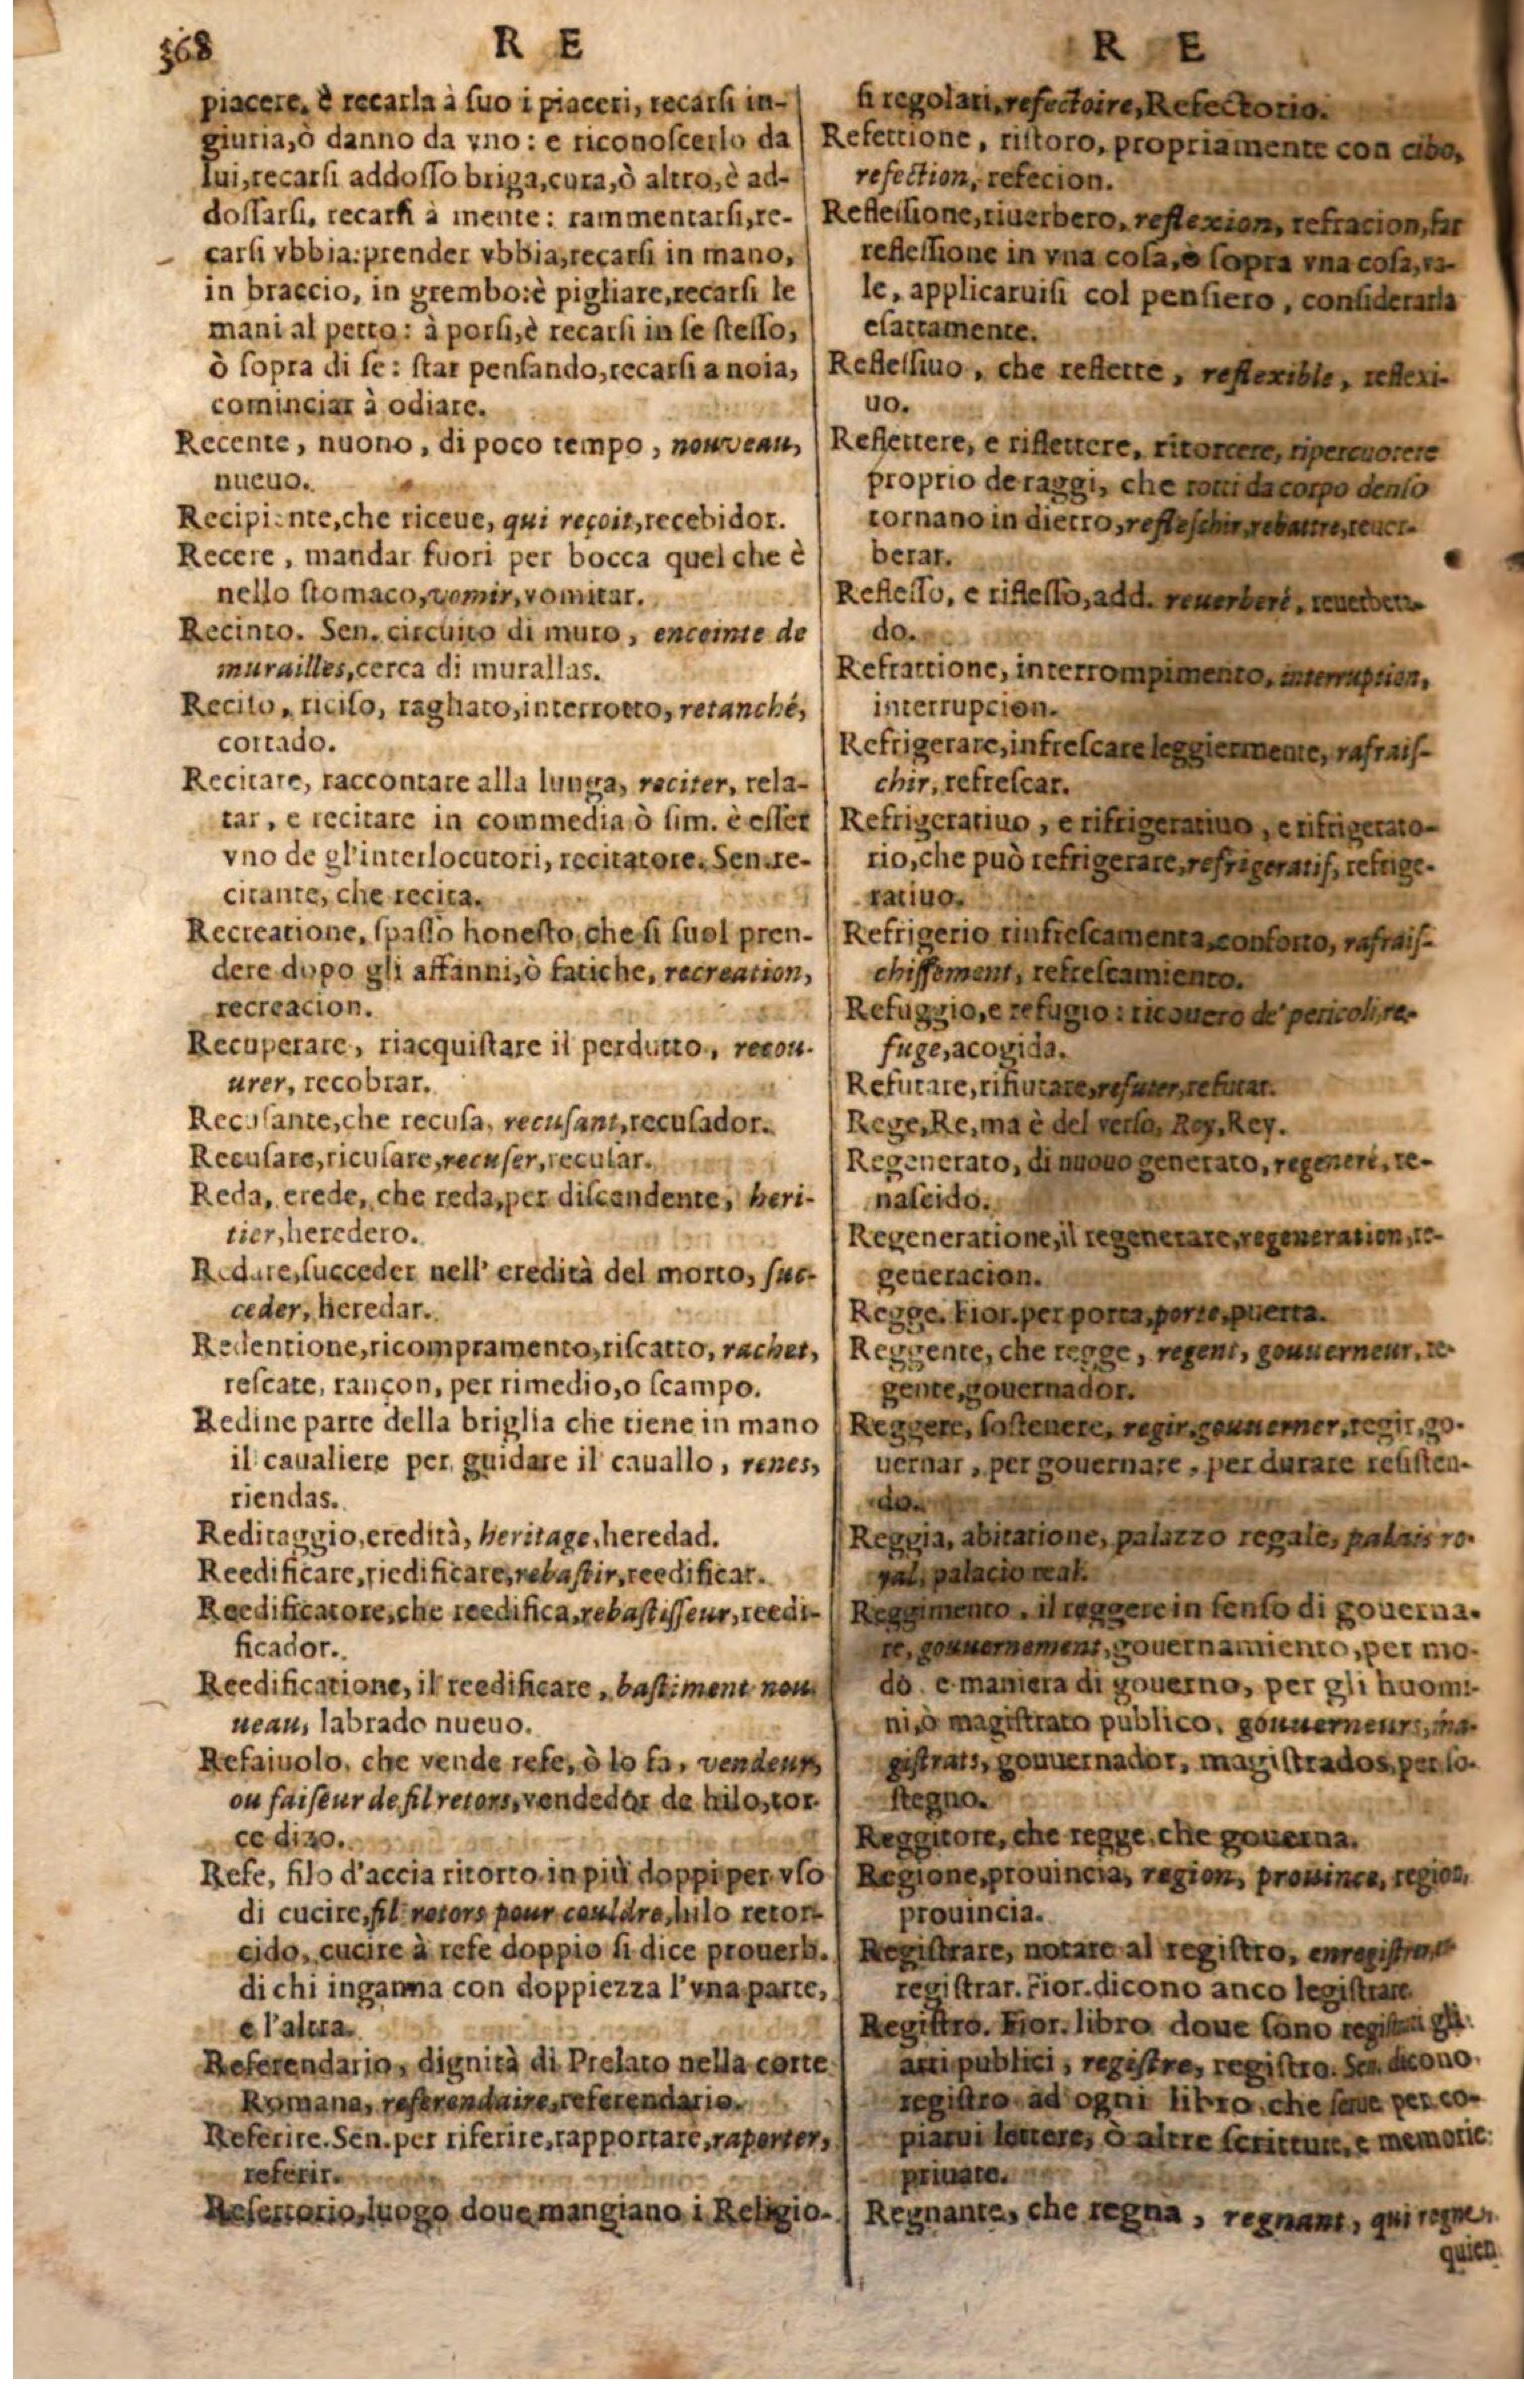 368
R E
piacere, è recarla à suo i piaceri, recarsi in-
giuria, ò danno da vno: e riconoscerlo da
lui, recarsi addosso briga, cura, ò altro, è ad-
dossarsi, recarsi à mente: rammentarsi, re-
carsi vbbia: prender vbbia, recarsi in mano,
in braccio, in grembo: è pigliare, recarsi le
mani al petto: à porsi, è recarsi in se stesso,
ò sopra di se: star pensando, recarsi a noia,
cominciar à odiare.
Recente, nuouo, di poco tempo, nouveau,
nueuo.
Recipiente, che riceue, qui reçoit, recebidor.
Recere, mandar fuori per bocca quel che è
nello stomaco, vomir, vomitar.
Recinto. Sen. circuito di muro, enceinte de
murailles, cerca di murallas.
Reciso, riciso, tagliato, interrotto, retanché,
cortado.
Recitare, raccontare alla lunga, reciter, rela-
tar, e recitare in commedia ò sim. è esser
vno de gl'interlocutori, recitatore. Sen. re-
citante, che recita.
Recreatione, spasso honesto, che si suol pren-
dere dopo gli affanni, ò fatiche, recreation,
recreacion.
Recuperare, riacquistare il perdutto, recou-
urer, recobrar.
Recusante, che recusa, recusant, recusador.
Recusare, ricusare, recuser, recusar.
Reda, erede, che reda, per discendente, heri-
tier, heredero.
Redare, succeder nell' eredità del morto, suc-
ceder, heredar.
Redentione, ricompramento, riscatto, rachet,
rescate, rançon, per rimedio, o scampo.
Redine parte della briglia che tiene in mano
il caualiere per guidare il cauallo, renes,
riendas.
Reditaggio, eredità, heritage, heredad.
Reedificare, riedificare, rebastir, reedificar.
Reedificatore, che reedifica, rebastisseur, reedi-
ficador.
Reedificatione, il reedificare, bastiment nou-
ueau, labrado nueuo.
Refaiuolo, che vende refe, ò lo fa, vendeur,
ou faiseur de fil retors, vendedor de hilo, tor-
ce dizo.
Refe, filo d'accia ritorto in più doppi per vso
di cucire, fil retors pour couldre, hilo retor-
cido, cucire à refe doppio si dice prouerb.
di chi inganna con doppiezza l'vna parte,
e l'altra.
Referendario, dignità di Prelato nella corte
Romana, referendaire, referendario.
Referire. Sen. per riferire, rapportare, raporter,
referir.
Refettorio, luogo doue mangiano i Religio-
R E
si regolari, refectoire, Refectorio.
Refettione, ristoro, propriamente con cibo,
refection, refecion.
Reflessione, riuerbero, reflexion, refracion, far
reflessione in vna cosa, ò sopra vna cosa, va-
le, applicaruisi col pensiero, considerarla
esattamente.
Reflessiuo, che reflette, reflexible, reflexi-
uo.
Reflettere, e riflettere, ritorcere, ripercuotere
proprio de raggi, che rotti da corpo denso
tornano in dietro, refleschir, rebattre, reuer-
berar.
Reflesso, e riflesso, add. reuerberé, reuerbera-
do.
Refrattione, interrompimento, interruption,
interrupcion.
Refrigerare, infrescare leggiermente, rafrais-
chir, refrescar.
Refrigeratiuo, e rifrigeratiuo, e rifrigerato-
rio, che può refrigerare, refrigeratif, refrige-
ratiuo.
Refrigerio rinfrescamento, conforto, rafrais-
chissement, refrescamiento.
Refuggio, e refugio: ricouero de' pericoli, re-
fuge, acogida.
Refutare, rifiutare, refuter, refutar.
Rege, Re, ma è del verso, Roy, Rey.
Regenerato, di nuouo generato, regeneré, re-
nascido.
Regeneratione, il regenerare, regeneration, re-
generacion.
Regge. Fior. per porta, porte, puerta.
Reggente, che regge, regent, gouuerneur, re-
gente, gouernador.
Reggere, sostenere, regir, gouuerner, regir, go-
uernar, per gouernare, per durare resisten-
do.
Reggia, abitatione, palazzo regale, palais ro-
yal, palacio real.
Reggimento, il reggere in senso di gouerna-
re, gouuernement, gouernamiento, per mo-
do e maniera di gouerno, per gli huomi-
ni, ò magistrato publico, gouuerneurs, ma-
gistrats, gouuernador, magistrados, per so-
stegno.
Reggitore, che regge, che gouerna.
Regione, prouincia, region, prouince, region,
prouincia.
Registrare, notare al registro, enregistrer,
registrar. Fior. dicono anco legistrare.
Registro. Fior. libro doue sono registrati gli
atti publici, registre, registro. Sen. dicono
registro ad ogni libro che serue per co-
piarui lettere, ò altre scritture, e memorie
priuate.
Regnante, che regna, regnant, qui regne,
quien